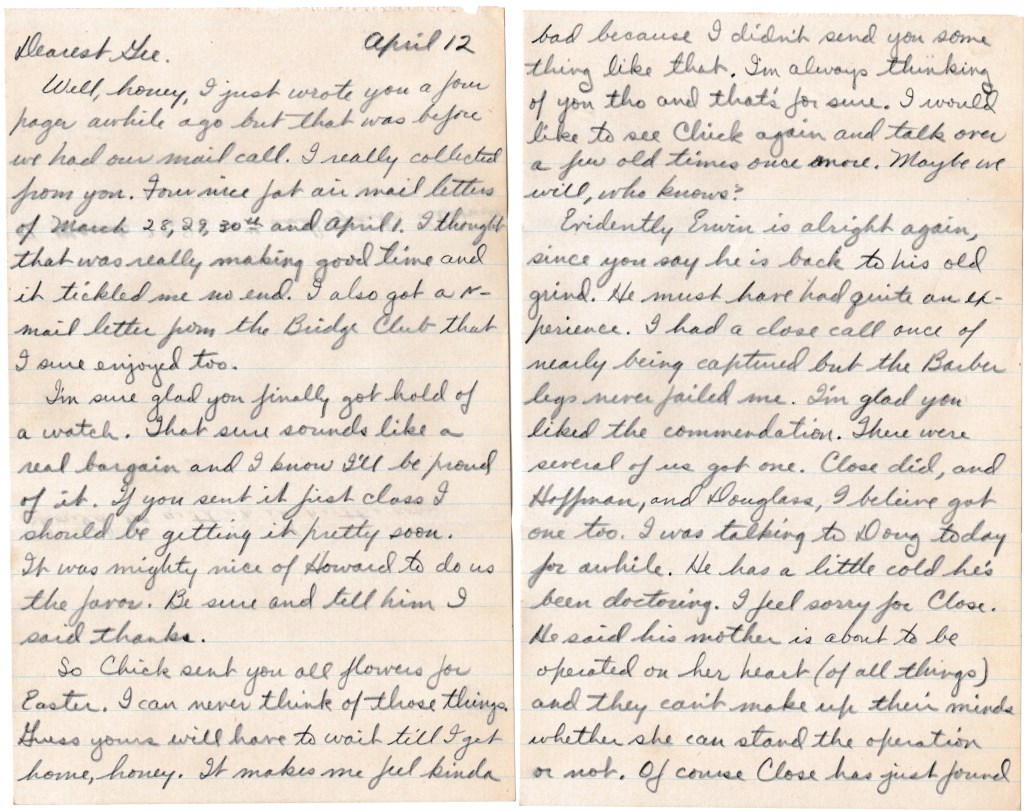 Dearest Gee. April 12
Well, honey, I just wrote you a four
pager awhile ago but that was before
we had our mail call. I really collected
from you. Four nice fat air mail letters
of March 28, 29, 30th and April 1. I thought
that was really making good time and
it tickled me no end. I also got a v-
mail letter from the Bridge Club that
I sure enjoyed too.
I'm sure glad you finally got hold of
a watch. That sure sounds like a
real bargain and I know I'll be proud
of it. If you sent it first class I
should be getting it pretty soon.
It was mighty nice of Howard to do us
the favor. Be sure and tell him I
said thanks.
So Chick sent you all flowers for
Easter. I can never think of those things.
Guess yours will have to wait till I get
home, honey. It makes me feel kinda
bad because I didn't send you some
thing like that. I'm always thinking
of you tho and that's for sure. I would
like to see Chick again and talk over
a few old times once more. Maybe we
will, who knows?
Evidently Erwin is alright again,
since you say he is back to his old
grind. He must have had quite an ex-
perience. I had a close call once of
nearly being captured but the Barber
legs never failed me. I'm glad you
liked the commendation. There were
several of us got one. Close did, and
Hoffman, and Douglass, I beleive got
one too. I was talking to Doug today
for awhile. He has a little cold he's
been doctoring. I feel sorry for Close.
He said his mother is about to be
operated on her heart (of all things)
and they can't make up their minds
whether she can stand the operation
or not. Of course Close has just found